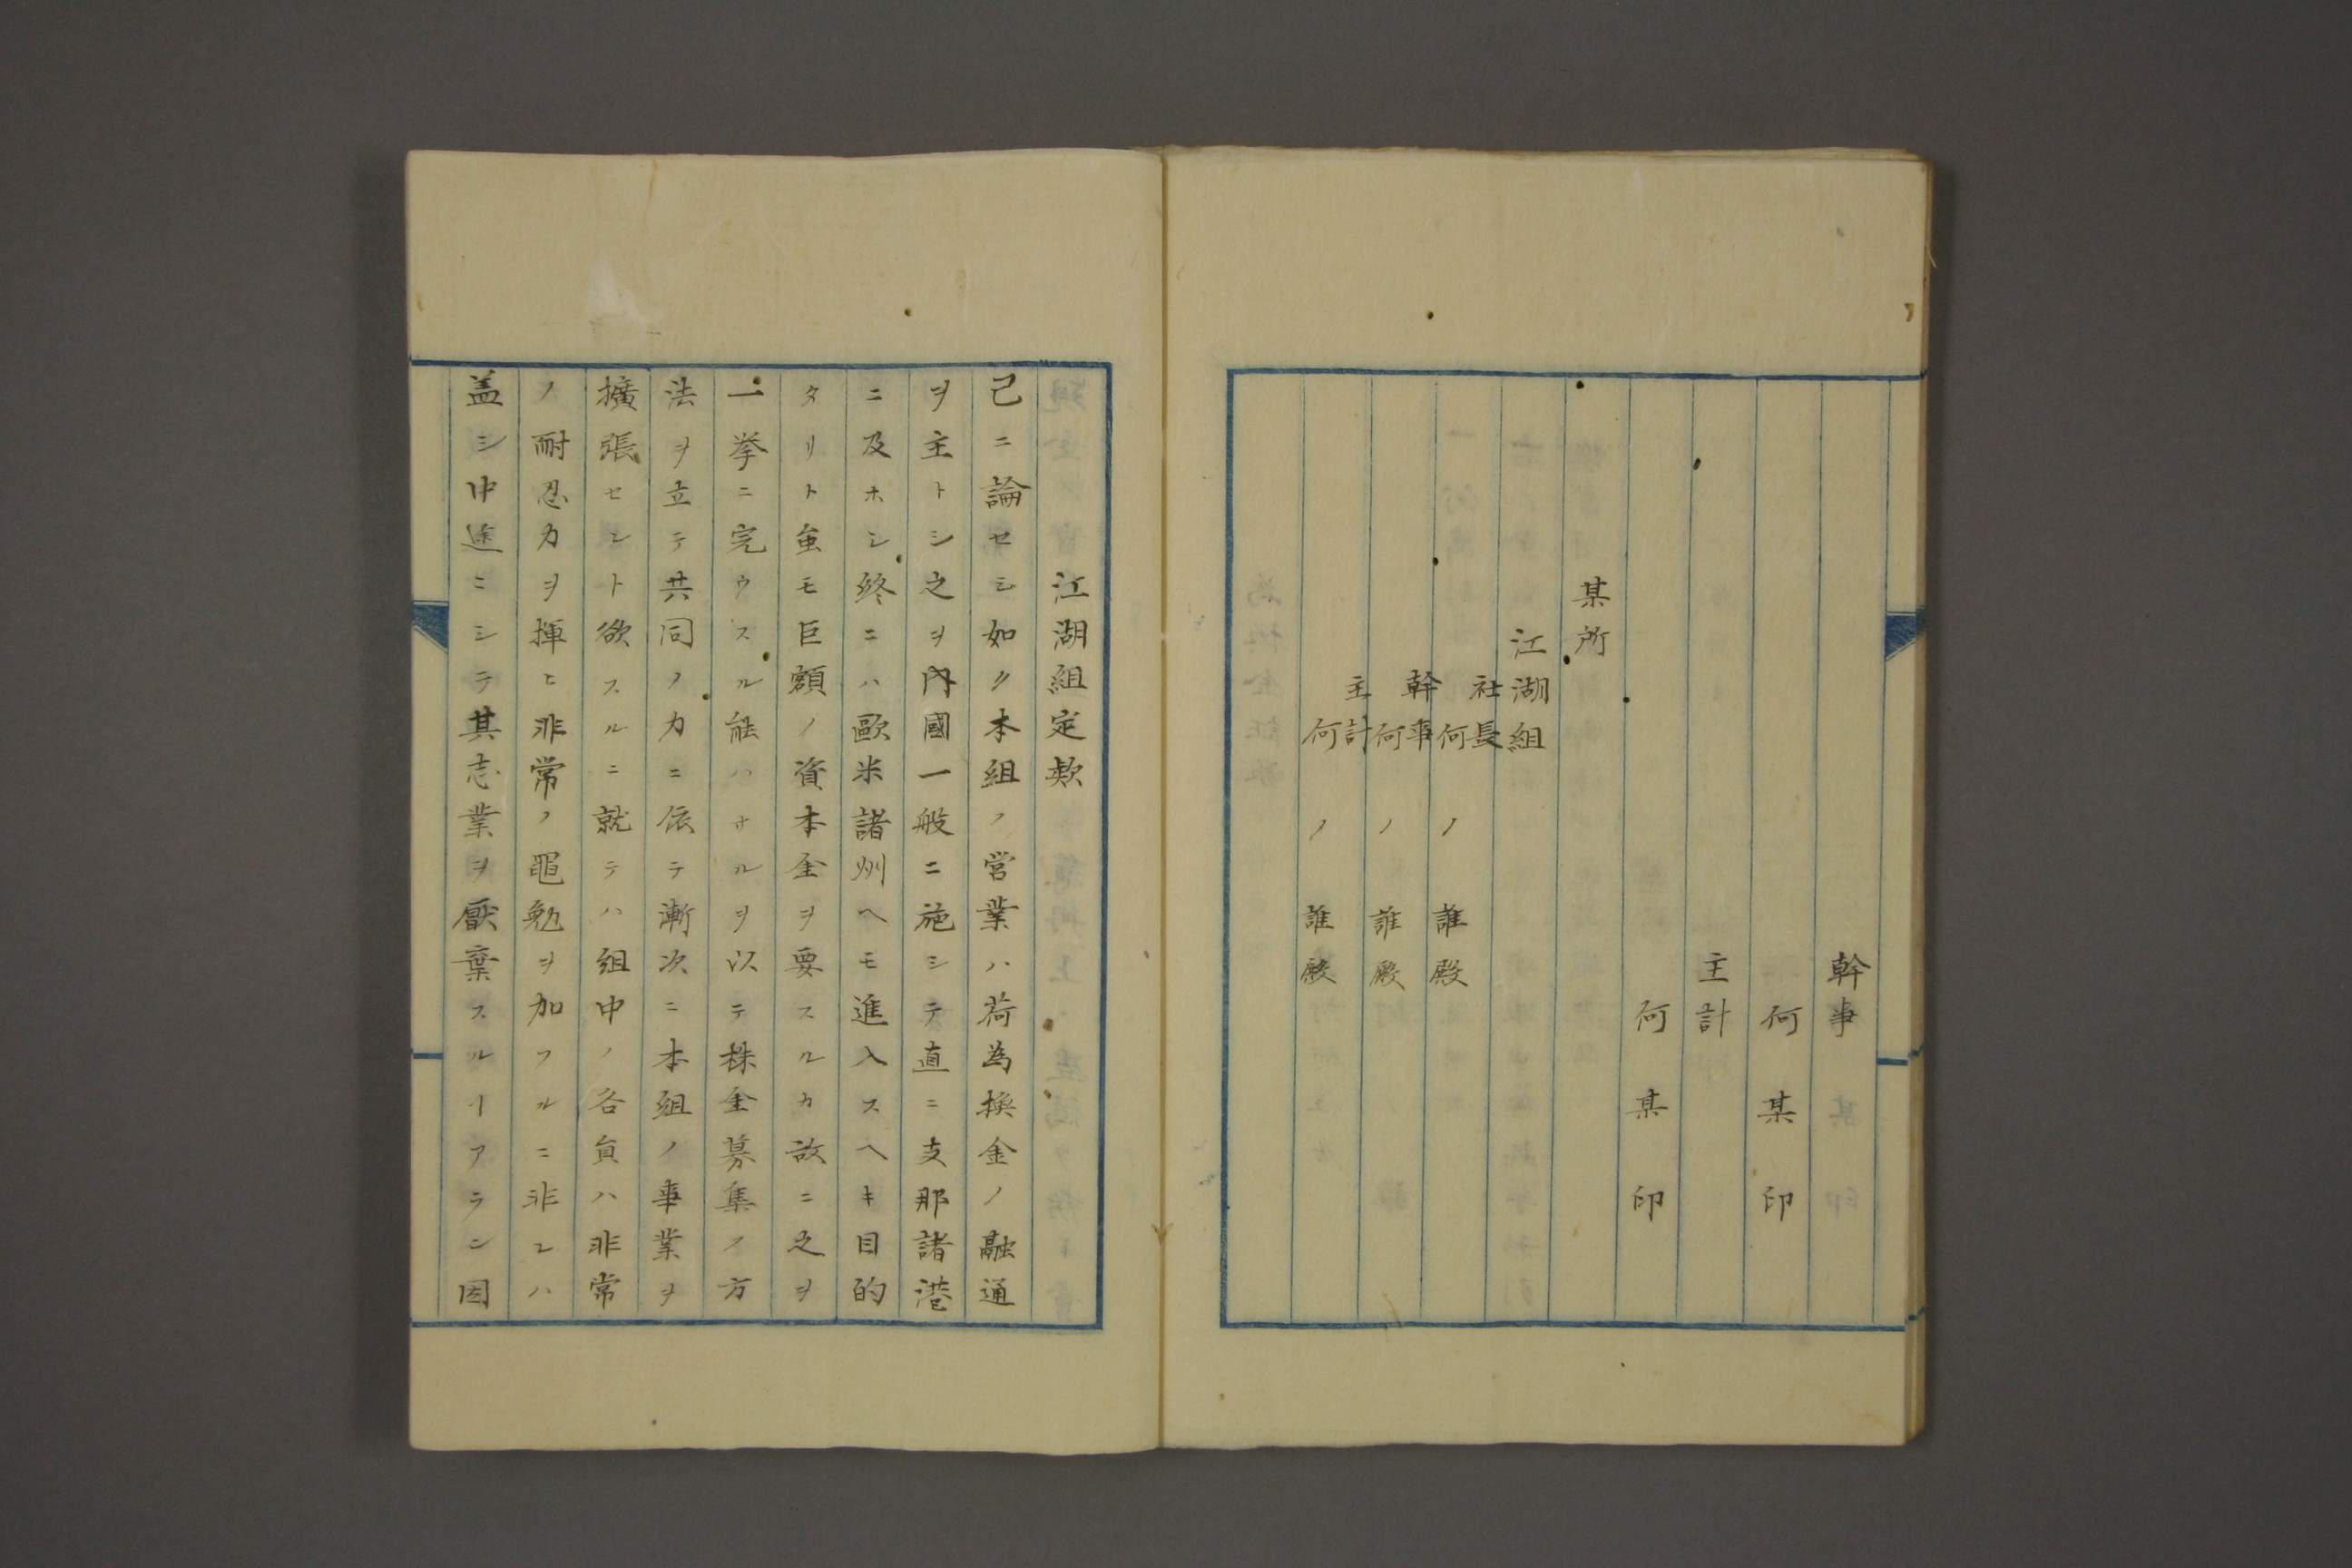 幹事
何某印
主計
何某印
某所
江湖組
社長
何ノ誰殿
幹事
何ノ誰殿
主計
何ノ誰殿
江湖組定欵
己ニ論セシ如ク本組ノ営業ハ荷為換金ノ融通
ヲ主トシ之ヲ内國一般ニ施シテ直ニ支那諸港
ニ及ホシ終ニハ歐米諸州ヘモ進入スヘキ目的
タリト虽モ巨額ノ資本金ヲ要スルカ故ニ之ヲ
一挙ニ完ウスル能ハサルヲ以テ株金募集ノ方
法ヲ立テ共同ノカニ依テ漸次ニ本組ノ事業ヲ
擴張セント欲スルニ就テハ組中ノ各員ハ非常
ノ耐忍力ヲ揮ヒ非常ノ黽勉ヲ加フルニ非レハ
盖シ中途ニシテ其志業ヲ厭棄スルヿアラン因